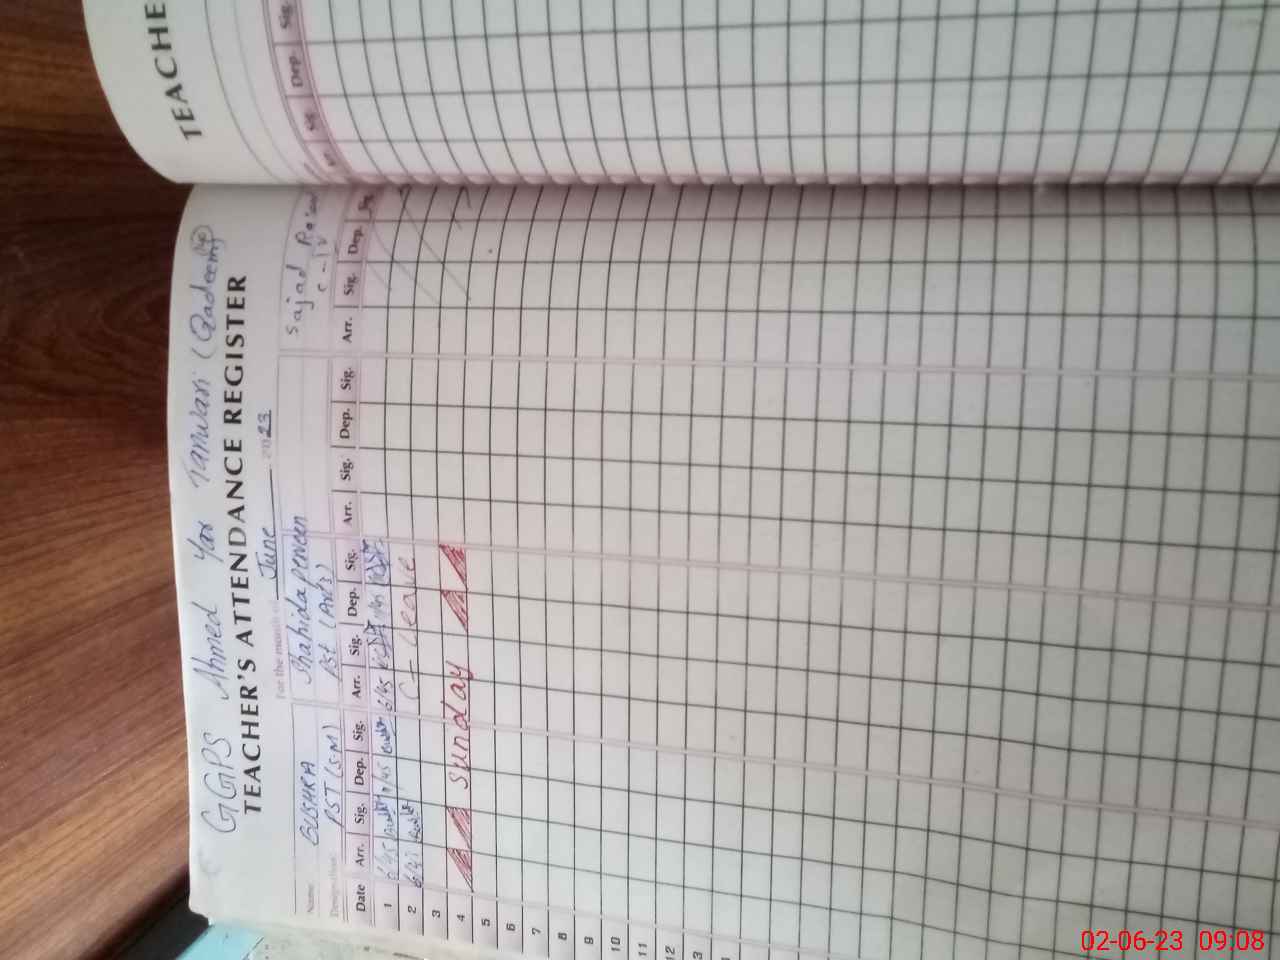 GGPS Ahmed Yar Tanwari (Qadeem)
TEACHER'S ATTENDANCE REGISTER
For the month of June 2023
Name BUSHRA Shahida perveen Sajad
Designation PST (SM) PST
Date Arr. Sig. Dep. Sig. Arr. Sig. Dep. Sig. Arr. Sig. Dep. Sig. Arr. Sig. Dep.
1 6/45
2 C- Leave
3
4 Sunday
5
6
7
8
9
10
11
12
TEACHE
Sig. Dep. Sig.
02-06-23 09:08